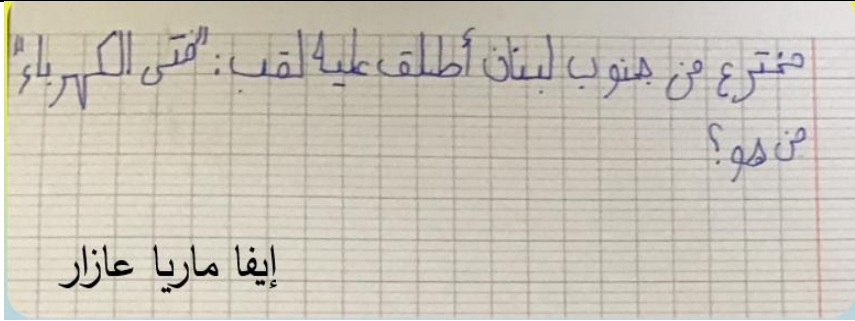 مخترع من جنوب لبنان أطلق عليه لقب: "فتى الكهرباء"
من هو؟
إيفا ماريا عازار